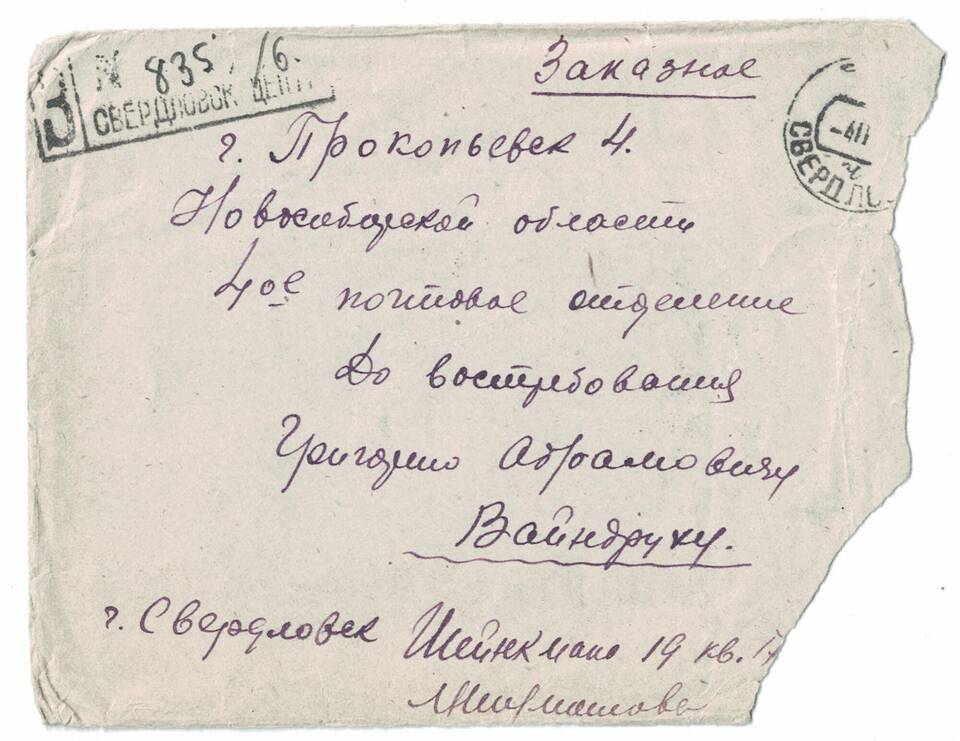 № 835/6.
СВЕРДЛОВСК ЦЕНТ
Заказное
-4II
СВЕРДЛО
г. Прокопьевск 4.
Новосибирской области
4ое почтовое отделение
До востребования
Григорию Абрамовичу
Вайнбруху.
г. Свердловск Шейнкмана 19 кв. 17